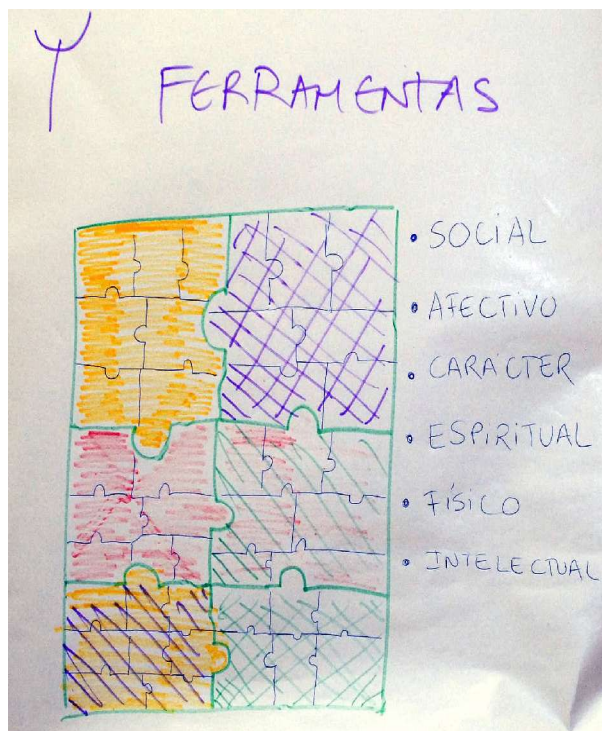 FERRAMENTAS
• SOCIAL
• AFECTIVO
• CARÁCTER
• ESPIRITUAL
• FÍSICO
• INTELECTUAL